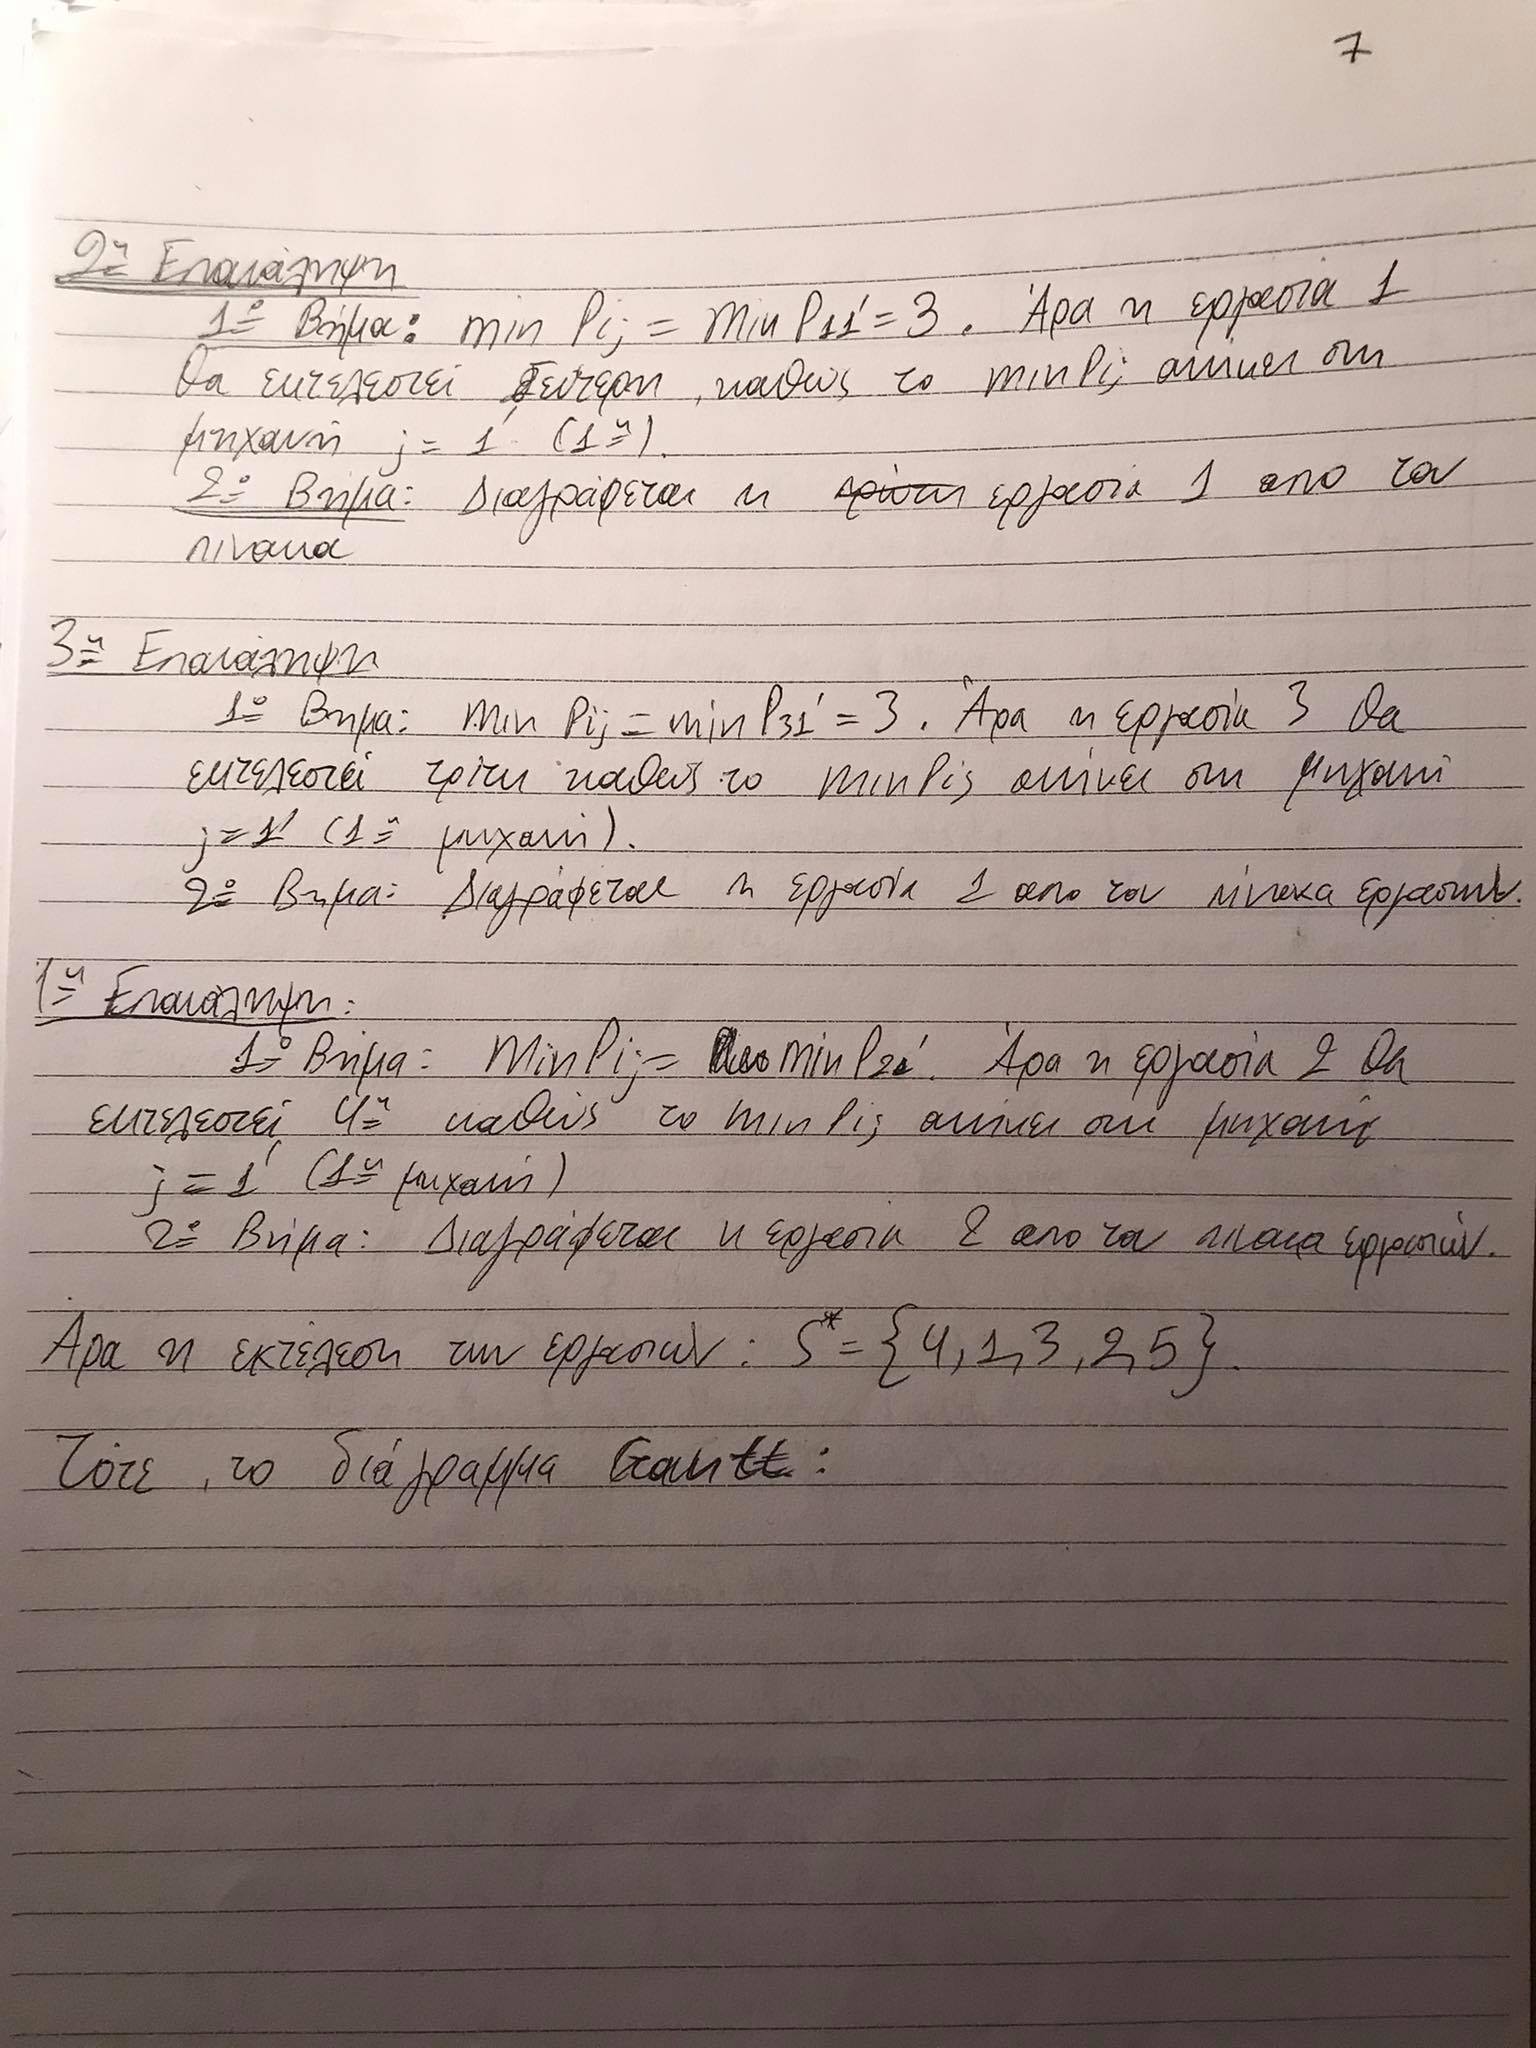 7
2η Επανάληψη
1ο Βήμα: min Pij = min P11' = 3. Άρα η εργασία 1
θα εκτελεστεί δεύτερη, καθώς το min Pij ανήκει στη
μηχανή j = 1' (1η).
2ο Βήμα: Διαγράφεται η πρώτη εργασία 1 απο τον
πινακα
3η Επανάληψη
1ο Βημα: min Pij = min P31' = 3. Άρα η εργασία 3 θα
εκτελεστεί τρίτη καθώς το min Pij ανήκει στη μηχανή
j = 1' (1η μηχανή).
2ο Βημα: Διαγράφεται η εργασία 1 απο τον πίνακα εργασιών.
1η Επανάληψη:
1ο Βήμα: Min Pij = min P21'. Άρα η εργασία 2 θα
εκτελεστεί 4η καθώς το min Pij ανήκει στη μηχανή
j = 1' (1η μηχανή)
2ο Βήμα: Διαγράφεται η εργασία 2 απο τον πινακα εργασιών.
Άρα η εκτέλεση των εργασιών: S* = {4, 1, 3, 2, 5}.
Τότε, το διάγραμμα Gantt: